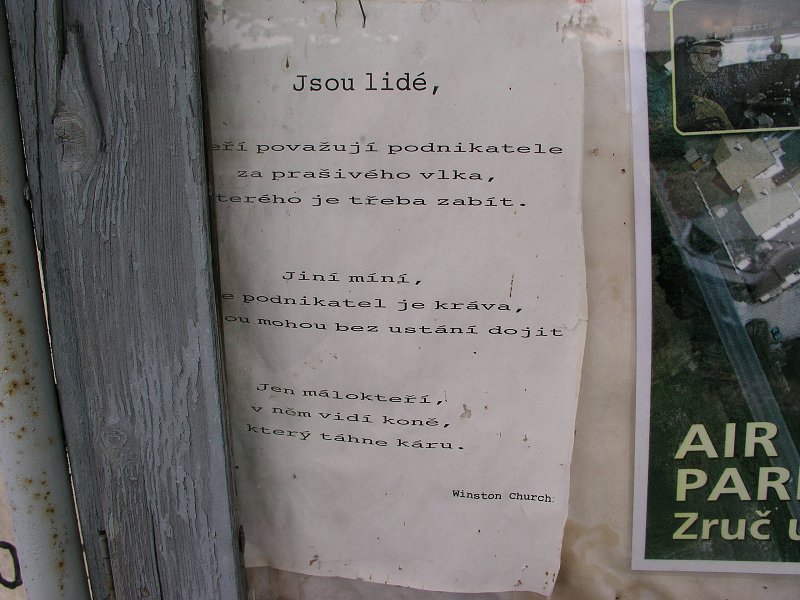 Jsou lidé,
eří považují podnikatele
za prašivého vlka,
terého je třeba zabít.
Jiní míní,
e podnikatel je kráva,
ou mohou bez ustání dojit
Jen málokteří,
v něm vidí koně,
který táhne káru.
Winston Church
AIR
PAR
Zruč u